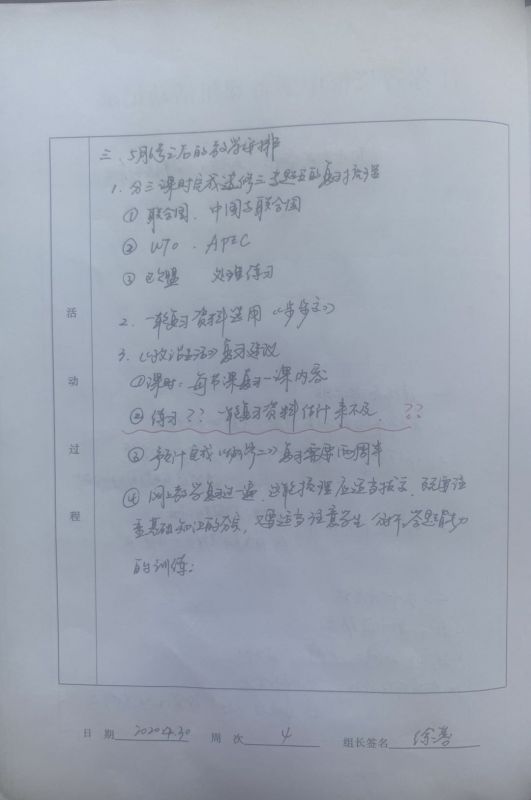 活动过程
三、5月6号之后的教学安排
1. 分三课时完成选修三专题五的复习梳理
① 联合国、中国与联合国
② WTO、APEC
③ 欧盟 处理练习
2. 一轮复习资料选用《步步高》
3. 《政治生活》复习建议
①课时：每节课复习一课内容
② 练习？？一轮复习资料估计来不及。？？
③ 预计完成《必修二》复习需要两周半
④ 网上教学复习过一遍，这轮梳理应适当拔高，既要注
重基础知识的夯实，又要适当注意学生分析、答题能力
的训练；
日 期 2020.4.30 周 次 4 组长签名 徐